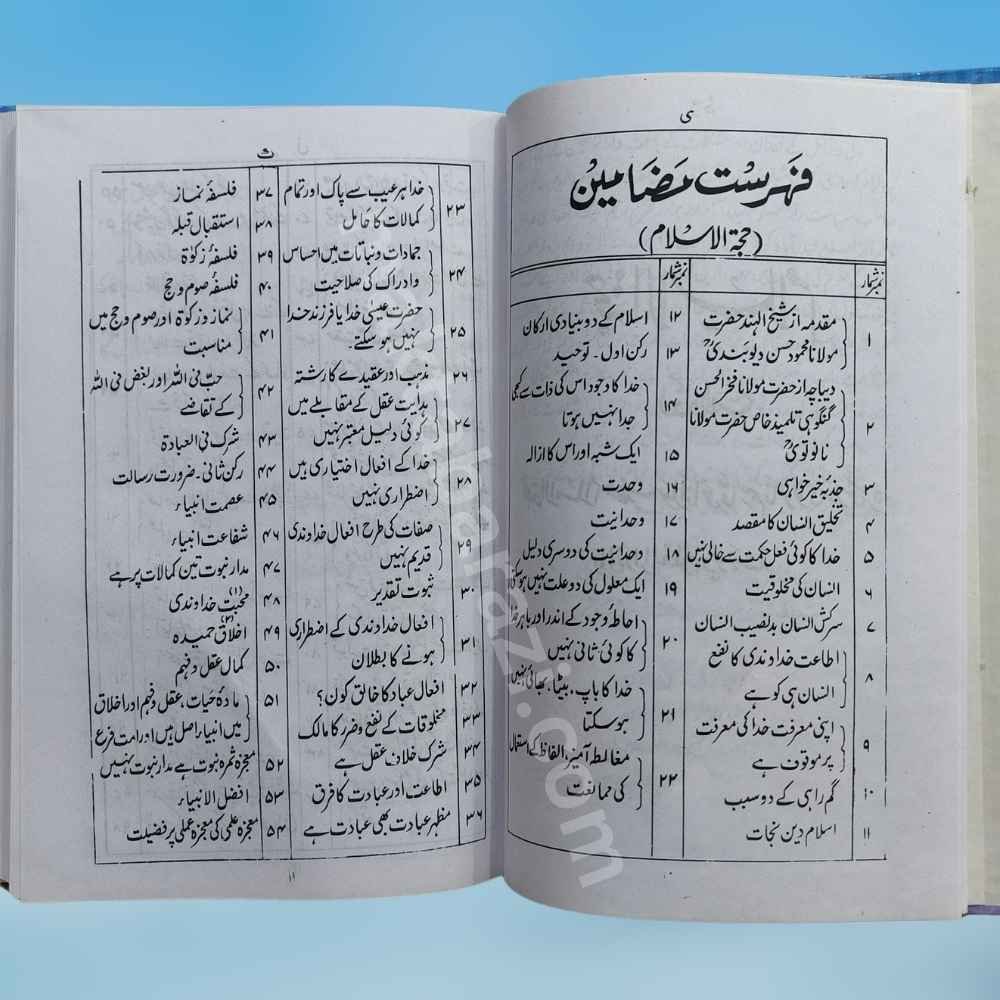 ی
فہرست مضامین
(حجۃ الاسلام)
نمبر شمار
۱ مقدمہ از شیخ الہند حضرت
مولانا محمود حسن دیوبندیؒ
۲ دیباچہ از حضرت مولانا فخر الحسن
گنگوہی تلمیذ خاص حضرت مولانا
نانوتویؒ
۳ جذبۂ خیر خواہی
۴ تخلیق انسان کا مقصد
۵ خدا کا کوئی فعل حکمت سے خالی نہیں
۶ انسان کی مخلوقیت
۷ سرکش انسان بدنصیب انسان
۸ اطاعت خداوندی کا نفع
انسان ہی کو ہے
۹ اپنی معرفت خدا کی معرفت
پر موقوف ہے
۱۰ گم راہی کے دو سبب
۱۱ اسلام دین نجات
نمبر شمار
۱۲ اسلام کے دو بنیادی ارکان
۱۳ رکن اول ۔ توحید
۱۴ خدا کا وجود اس کی ذات سے کبھی
جدا نہیں ہوتا
۱۵ ایک شبہ اور اس کا ازالہ
۱۶ وحدت
۱۷ وحدانیت
۱۸ وحدانیت کی دوسری دلیل
۱۹ ایک معلول کی دو علت نہیں ہوسکتی
۲۰ احاطۂ وجود کے اندر اور باہر خدا
کا کوئی ثانی نہیں
۲۱ خدا کا باپ، بیٹا، بھائی نہیں
ہوسکتا
۲۲ مغالطہ آمیز الفاظ کے استعمال
کی ممانعت
ث
۲۳ خدا ہر عیب سے پاک اور تمام
کمالات کا حامل
۲۴ جمادات و نباتات میں احساس
و ادراک کی صلاحیت
۲۵ حضرت عیسیٰ خدا یا فرزند خدا
نہیں ہوسکتے۔
۲۶ مذہب اور عقیدے کا رشتہ
۲۷ ہدایت عقل کے مقابلے میں
کوئی دلیل معتبر نہیں
۲۸ خدا کے افعال اختیاری ہیں
اضطراری نہیں
۲۹ صفات کی طرح افعال خداوندی
قدیم نہیں
۳۰ ثبوت تقدیر
۳۱ افعال خداوندی کے اضطراری
ہونے کا بطلان
۳۲ افعال عباد کا خالق کون؟
۳۳ مخلوقات کے نفع و ضرر کا مالک
۳۴ شرک خلاف عقل ہے
۳۵ اطاعت اور عبادت کا فرق
۳۶ مظہر عبادت بھی عبادت ہے
۳۷ فلسفۂ نماز
۳۸ استقبال قبلہ
۳۹ فلسفۂ زکوٰۃ
۴۰ فلسفۂ صوم و حج
۴۱ نماز و زکوٰۃ اور صوم و حج میں
مناسبت
۴۲ حب فی اللہ اور بغض فی اللہ
کے تقاضے
۴۳ شرک فی العبادۃ
۴۴ رکن ثانی ۔ ضرورت رسالت
۴۵ عصمت انبیاء
۴۶ شفاعت انبیاء
۴۷ مدار نبوت تین کمالات پر ہے
۴۸ (۱) محبت خداوندی
۴۹ (۲) اخلاق حمیدہ
۵۰ کمال عقل و فہم
۵۱ مادۂ حیات، عقل و فہم اور اخلاق
میں انبیاء اصل ہیں اور امت فرع
۵۲ معجزہ ثمرہ نبوت ہے مدار نبوت نہیں
۵۳ افضل الانبیاء
۵۴ معجزہ علمی کی معجزہ عملی پر فضیلت